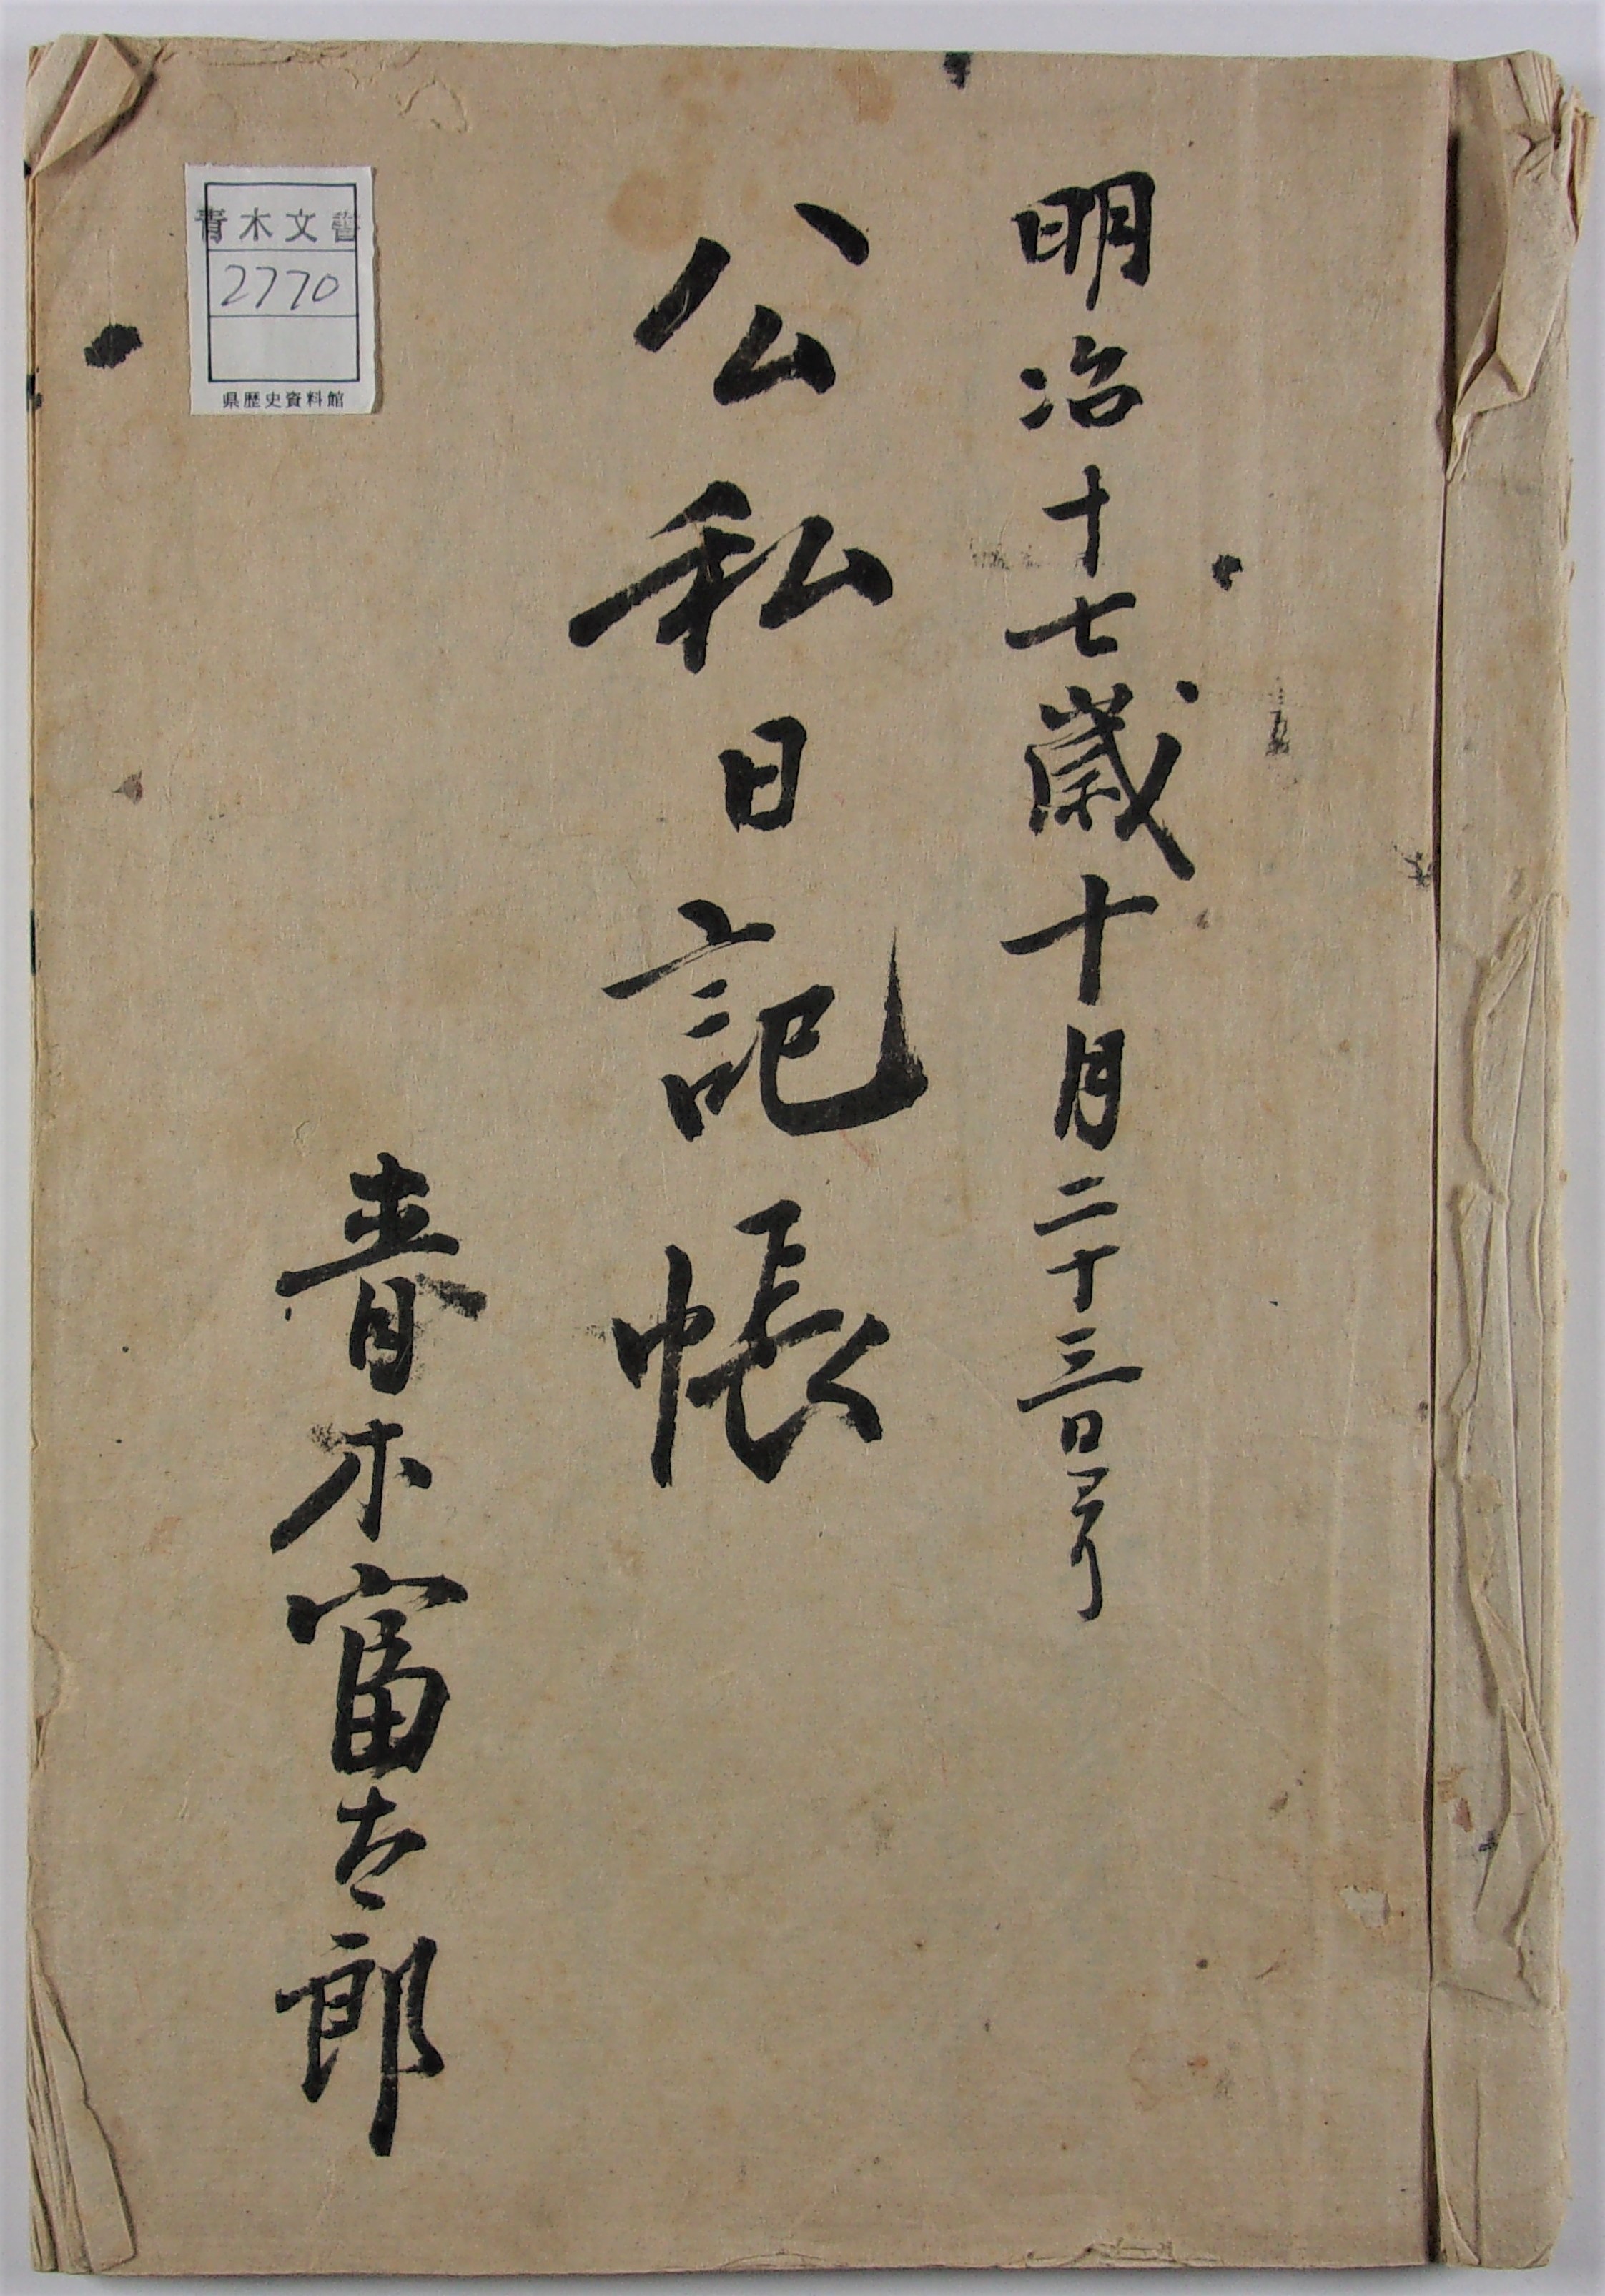 明治十七歳十月二十三日ヨリ
公私日記帳
青木富太郎
青木文書
2770
県歴史資料館